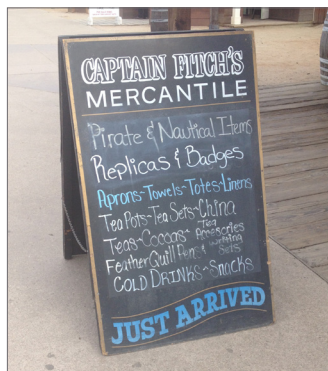 CAPTAIN FITCH'S
MERCANTILE
Pirate & Nautical Items
Replicas & Badges
Aprons~Towels~Totes~Linens
Tea Pots~Tea Sets~China
Teas~Cocoas~ Tea Accesories
Feather Quill Pens & Writing Sets
COLD DRINKS~Snacks
JUST ARRIVED